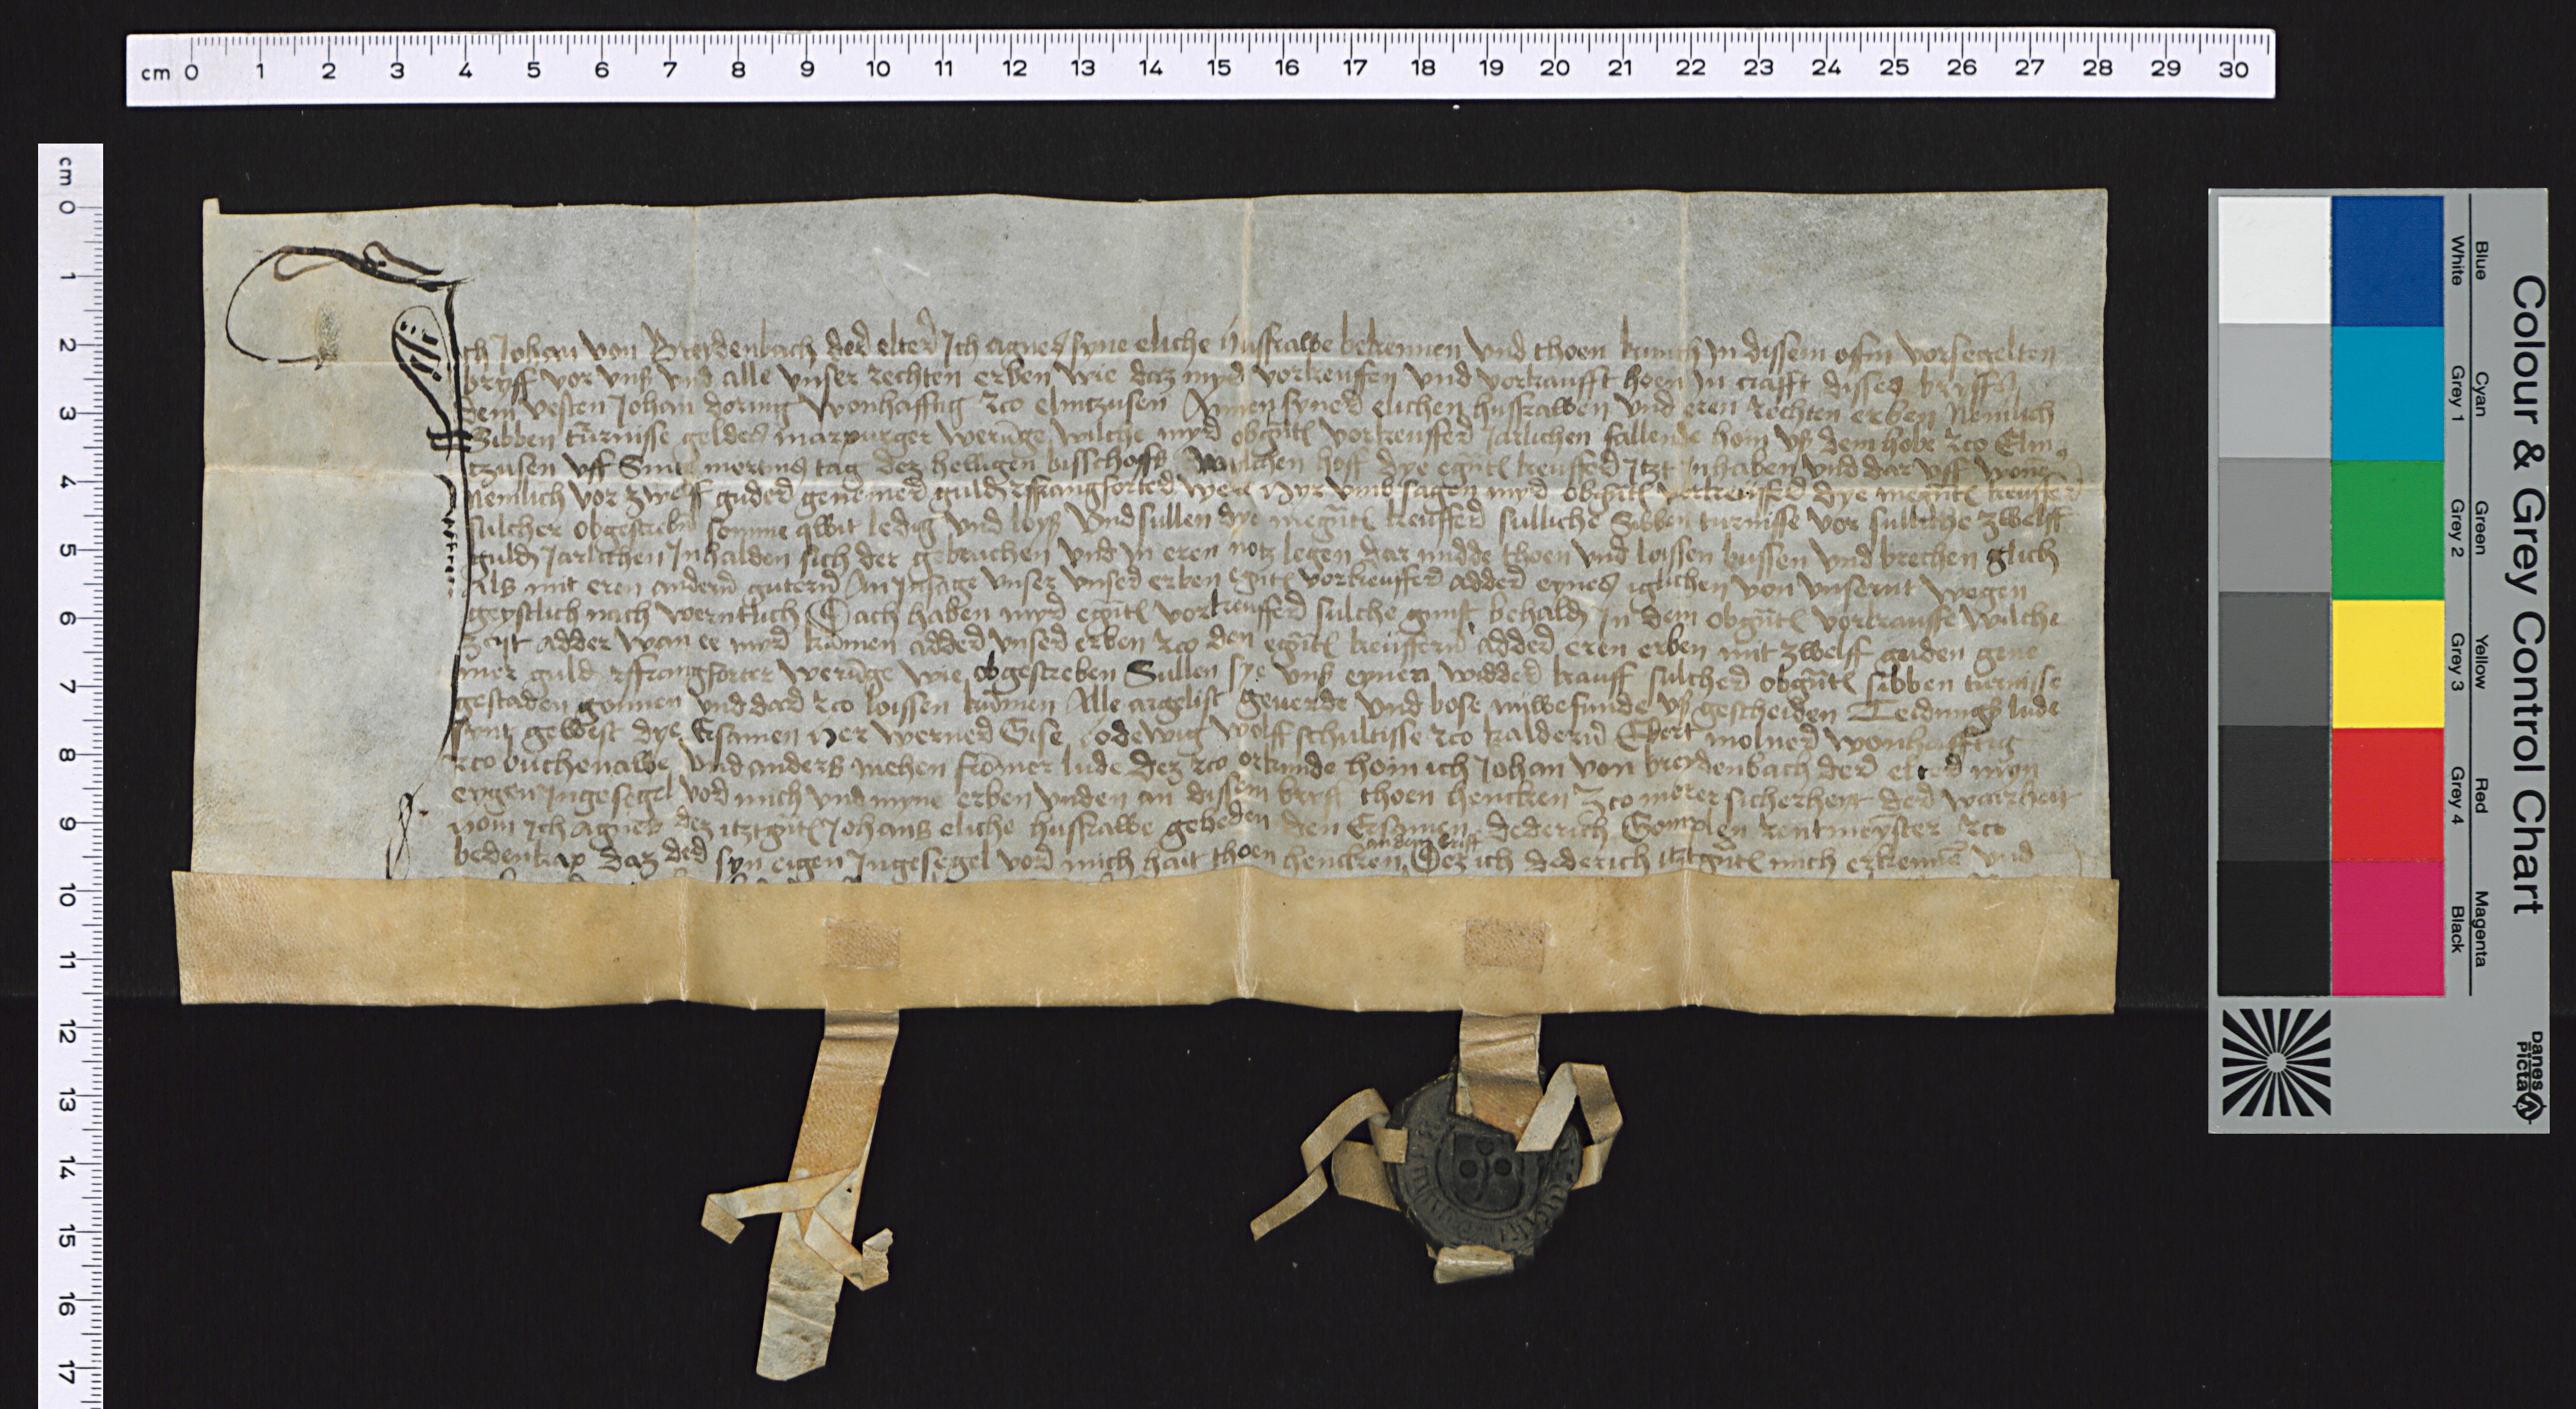 cm 0 1 2 3 4 5 6 7 8 9 10 11 12 13 14 15 16 17 18 19 20 21 22 23 24 25 26 27 28 29 30
cm 0 1 2 3 4 5 6 7 8 9 10 11 12 13 14 15 16 17
Ich Johan von Breydenbach der elter Ich agnes syne eliche hussfrawe bekennen vnd thoen kunth in dissem offin vorsegelten
bryff vor vnß vnd alle vnser rechten erben wie daz myr vorkeuffen vnd vorkaufft hoen in crafft disses bryffs
dem vesten Johan doring wonhafftig zco elmczusen Annen syner elichen hussfrawen vnd eren rechten erben Nemlich
Sibben turnisse geldes marpurger werunge wilche myr obgnt vorkeuffer Jarlichen fallende hoin vß dem hobe zco Elm
czusen vff Sinte mertins tag dez heiligen bisschoffs wilchen hoff dye egnt keuffer itzt inhaben vnd dar vff wonen
nemlich vor zwelff guder genemer guld ffrangforter were Hyr vmb sagen myr obgnt vorkeuffer dye megnt keuffer
sulcher obgescrebn somme qwit ledig vnd loyß Vnd sullen dye megnt keuffer sulliche Sibben turnisse vor sulliche zwelff
guld Jarlichen Inhalden sich der gebruchen vnd in eren notz legen dar midde thoen vnd loissen bussen vnd brechen glich
Als mit eren andern gutern An Insage vnser vnser erben egnt vorkeuffer adder eynes iglichen von vnsernt wegen
geystlich nach werntlich Dach haben myr egnt vorkeuffer sulche gunst behald in dem obgnt vorkauffe wilche
zyt adder wan ee myr kůmen adder vnser erben zco den egnt keuffern adder eren erben mit zwelff guden gene
mer guld ffrangforter werunge wie obgescreben Sullen sye vnß eynen widder kauff sulcher obgnt sibben turnisse
gestaden gonnen vnd dar zco loissen kůmen Alle argelist geuerde vnd bose nuwefunde vß gescheiden Teidungs lude
synt gewest dye Ersamen Her werner Gise lodewig wolff schultisse zco kaldern Ebert molner wonhafftig
zco buchenawe vnd anders mehen fromer lude Dez zco orkunde hoin ich Johan von breydenbach der elter myn
eygen Ingesegel vor mich vnd myne erben vnden an dissem bryff thoen hencken Zco merer sicherheyt der warheit
Hoin Ich agnes dez itztgnt Johans eliche hussfrawe gebeden den Ersamen dederich Gomplen rentmeyster zco
an dem briff
bedenkap daz der syn eigen Ingesegel vor mich hait thoen hencken Dez ich dederich itztgnt mich erkenne vnd
Colour & Grey Control Chart
Blue Cyan Green Yellow Red Magenta
White Grey 1 Grey 2 Grey 3 Grey 4 Black
Danes
Picta